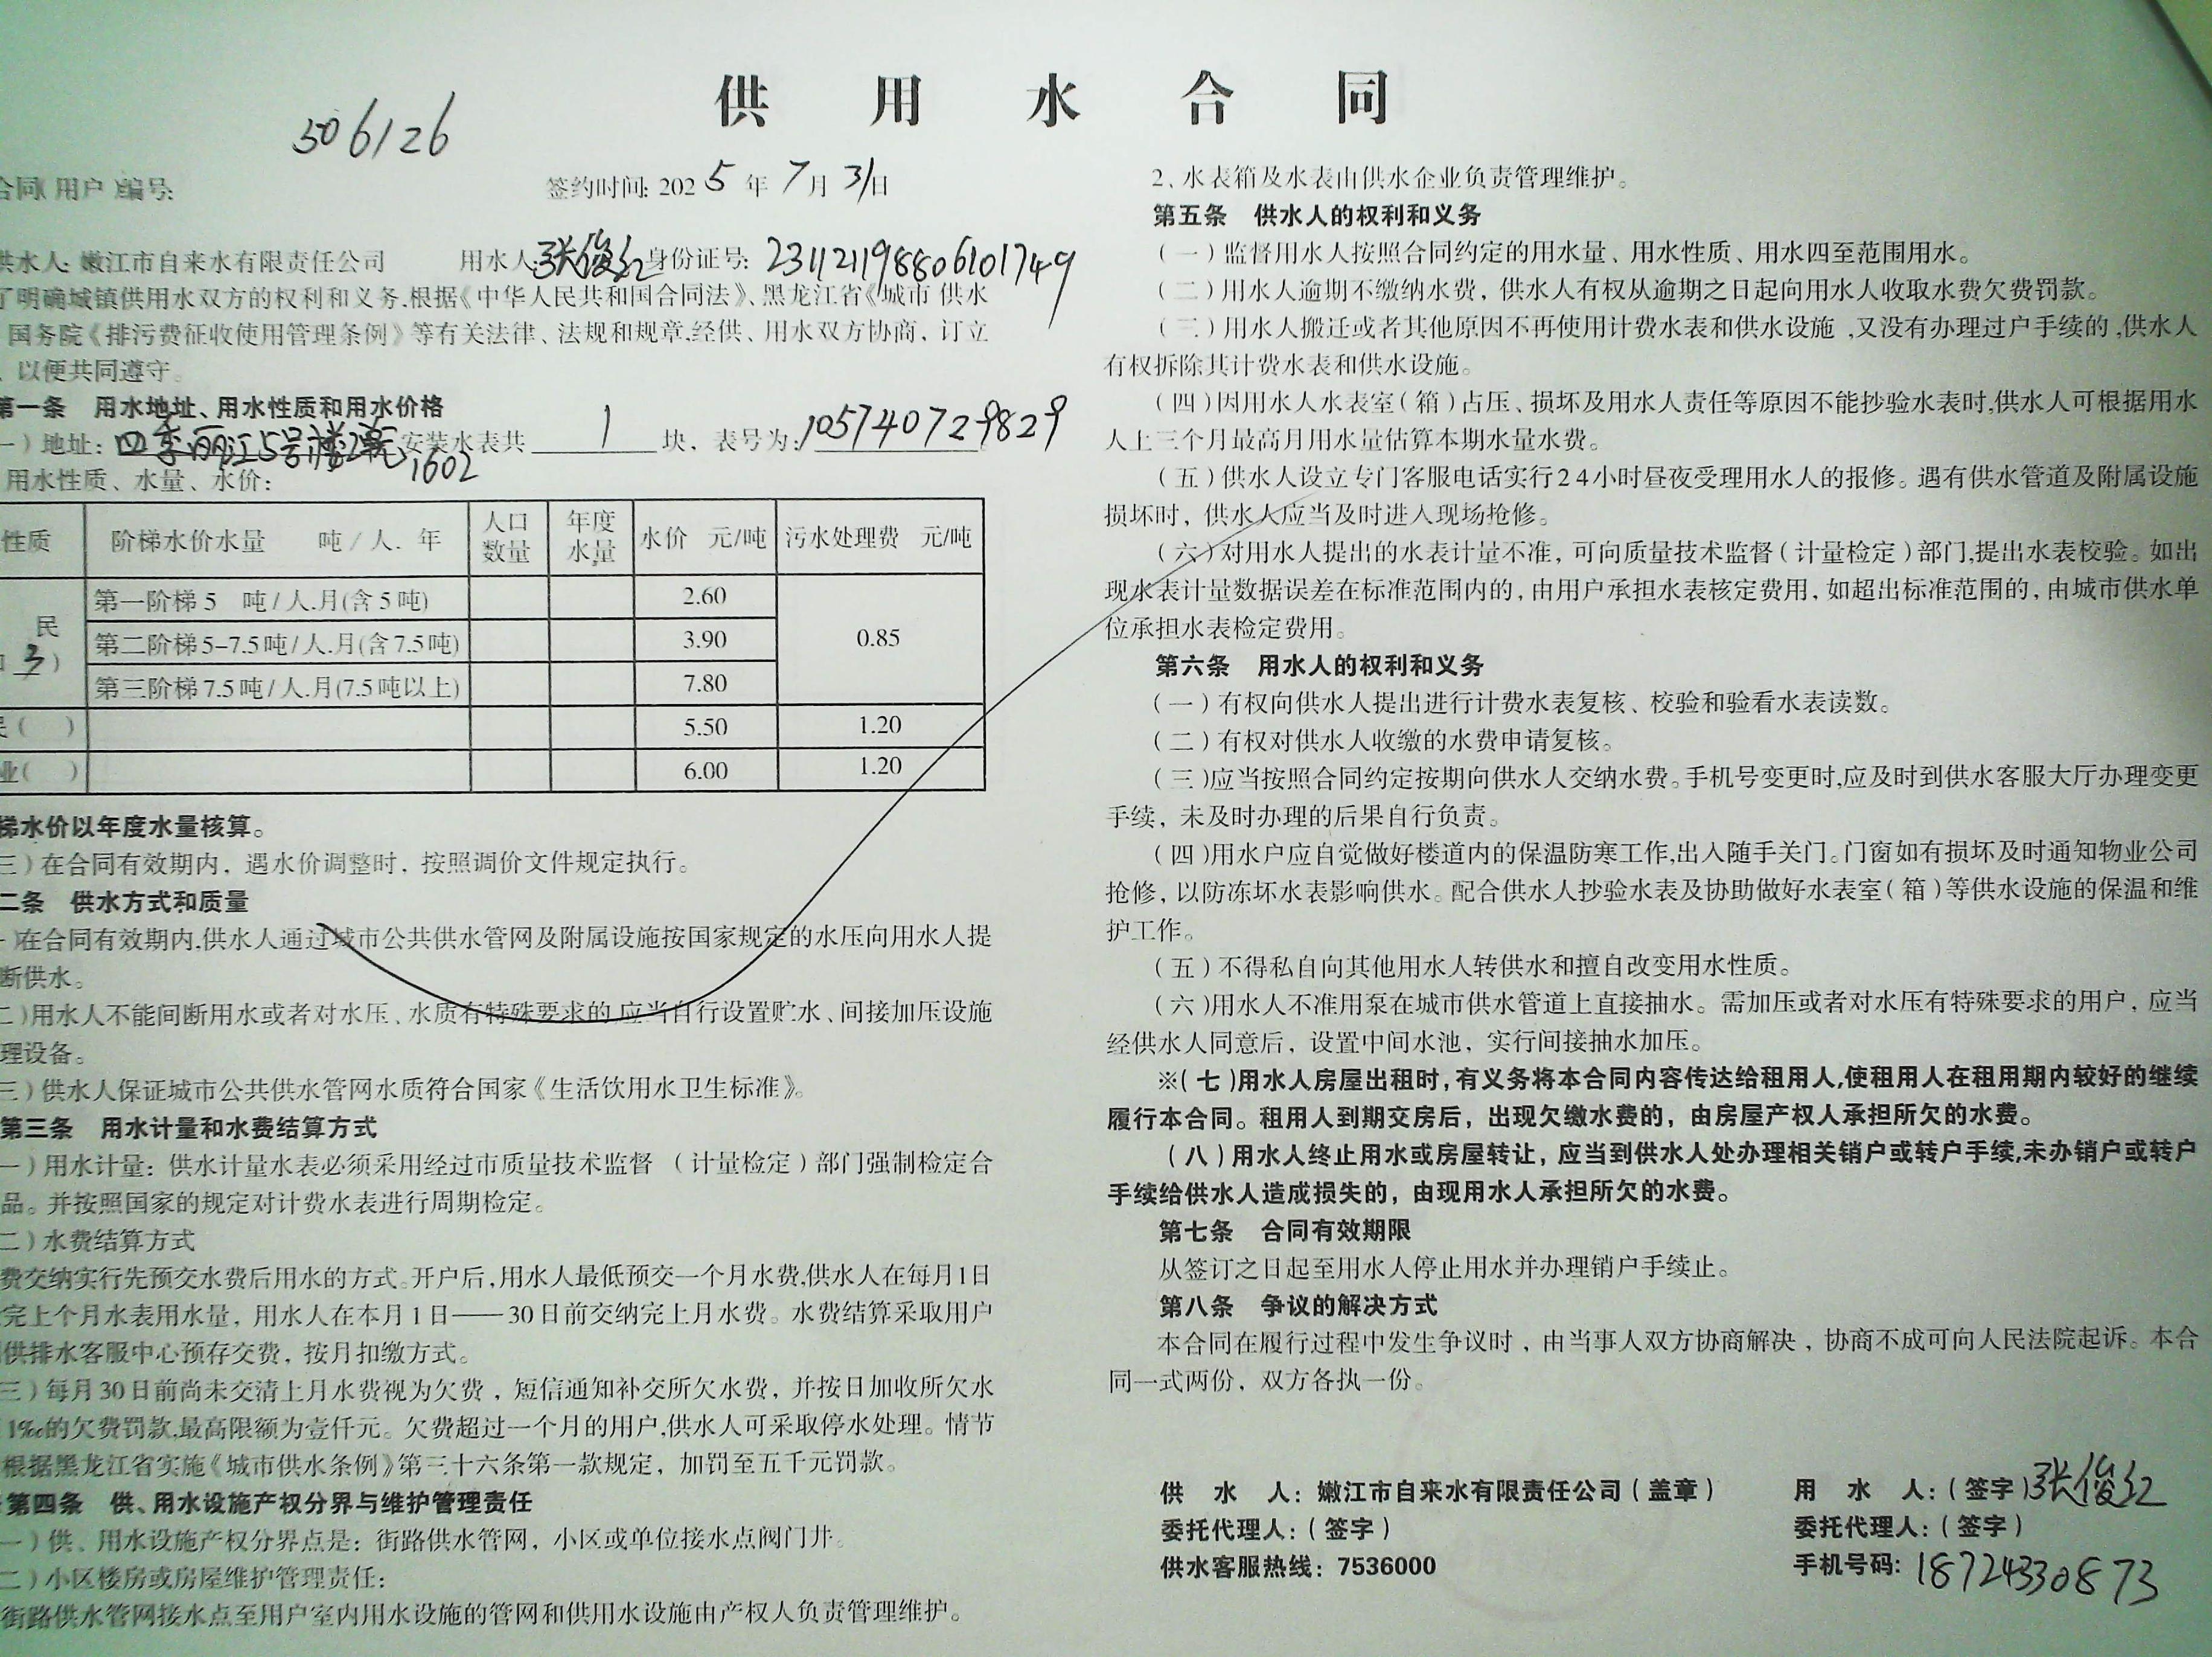 供用水合同
506126
合同(用户)编号:
签约时间: 2025年7月31日
供水人: 嫩江市自来水有限责任公司 用水人:张俊红 身份证号: 231121198806101749
了明确城镇供用水双方的权利和义务,根据《中华人民共和国合同法》、黑龙江省《城市供水
国务院《排污费征收使用管理条例》等有关法律、法规和规章,经供、用水双方协商, 订立
、以便共同遵守。
第一条 用水地址、用水性质和用水价格
一)地址: 四季丽江5号楼2单元1602 安装水表共 1 块, 表号为: 105740729829
用水性质、水量、水价:
性质 阶梯水价水量 吨/人. 年 人口数量 年度水量 水价 元/吨 污水处理费 元/吨
民
3 )
第一阶梯 5 吨/人.月(含5吨) 2.60
第二阶梯 5-7.5吨/人.月(含7.5吨) 3.90 0.85
第三阶梯 7.5吨/人.月(7.5吨以上) 7.80
民( ) 5.50 1.20
业( ) 6.00 1.20
梯水价以年度水量核算。
三)在合同有效期内, 遇水价调整时, 按照调价文件规定执行。
二条 供水方式和质量
)在合同有效期内,供水人通过城市公共供水管网及附属设施按国家规定的水压向用水人提
断供水。
二)用水人不能间断用水或者对水压、水质有特殊要求的,应当自行设置贮水、间接加压设施
理设备。
三)供水人保证城市公共供水管网水质符合国家《生活饮用水卫生标准》。
第三条 用水计量和水费结算方式
一)用水计量: 供水计量水表必须采用经过市质量技术监督 (计量检定)部门强制检定合
品。并按照国家的规定对计费水表进行周期检定。
二)水费结算方式
费交纳实行先预交水费后用水的方式。开户后,用水人最低预交一个月水费,供水人在每月1日
完上个月水表用水量, 用水人在本月1日——30日前交纳完上月水费。水费结算采取用户
供排水客服中心预存交费, 按月扣缴方式。
三)每月30日前尚未交清上月水费视为欠费, 短信通知补交所欠水费, 并按日加收所欠水
1‰的欠费罚款,最高限额为壹仟元。欠费超过一个月的用户,供水人可采取停水处理。情节
根据黑龙江省实施《城市供水条例》第三十六条第一款规定, 加罚至五千元罚款。
第四条 供、用水设施产权分界与维护管理责任
一)供、用水设施产权分界点是: 街路供水管网, 小区或单位接水点阀门井。
二)小区楼房或房屋维护管理责任:
街路供水管网接水点至用户室内用水设施的管网和供用水设施由产权人负责管理维护。
2、水表箱及水表由供水企业负责管理维护。
第五条 供水人的权利和义务
(一)监督用水人按照合同约定的用水量、用水性质、用水四至范围用水。
(二)用水人逾期不缴纳水费, 供水人有权从逾期之日起向用水人收取水费欠费罚款。
(三)用水人搬迁或者其他原因不再使用计费水表和供水设施,又没有办理过户手续的,供水人
有权拆除其计费水表和供水设施。
(四)因用水人水表室(箱)占压、损坏及用水人责任等原因不能抄验水表时,供水人可根据用水
人上三个月最高月用水量估算本期水量水费。
(五)供水人设立专门客服电话实行24小时昼夜受理用水人的报修。遇有供水管道及附属设施
损坏时, 供水人应当及时进入现场抢修。
(六)对用水人提出的水表计量不准, 可向质量技术监督(计量检定)部门,提出水表校验。如出
现水表计量数据误差在标准范围内的, 由用户承担水表核定费用, 如超出标准范围的, 由城市供水单
位承担水表检定费用。
第六条 用水人的权利和义务
(一)有权向供水人提出进行计费水表复核、校验和验看水表读数。
(二)有权对供水人收缴的水费申请复核。
(三)应当按照合同约定按期向供水人交纳水费。手机号变更时,应及时到供水客服大厅办理变更
手续, 未及时办理的后果自行负责。
(四)用水户应自觉做好楼道内的保温防寒工作,出入随手关门。门窗如有损坏及时通知物业公司
抢修, 以防冻坏水表影响供水。配合供水人抄验水表及协助做好水表室(箱)等供水设施的保温和维
护工作。
(五)不得私自向其他用水人转供水和擅自改变用水性质。
(六)用水人不准用泵在城市供水管道上直接抽水。需加压或者对水压有特殊要求的用户, 应当
经供水人同意后, 设置中间水池, 实行间接抽水加压。
※(七)用水人房屋出租时,有义务将本合同内容传达给租用人,使租用人在租用期内较好的继续
履行本合同。租用人到期交房后, 出现欠缴水费的, 由房屋产权人承担所欠的水费。
(八)用水人终止用水或房屋转让, 应当到供水人处办理相关销户或转户手续,未办销户或转户
手续给供水人造成损失的, 由现用水人承担所欠的水费。
第七条 合同有效期限
从签订之日起至用水人停止用水并办理销户手续止。
第八条 争议的解决方式
本合同在履行过程中发生争议时, 由当事人双方协商解决, 协商不成可向人民法院起诉。本合
同一式两份, 双方各执一份。
供水人: 嫩江市自来水有限责任公司(盖章) 用水人: (签字)张俊红
委托代理人: (签字) 委托代理人: (签字)
供水客服热线: 7536000 手机号码: 18724330873